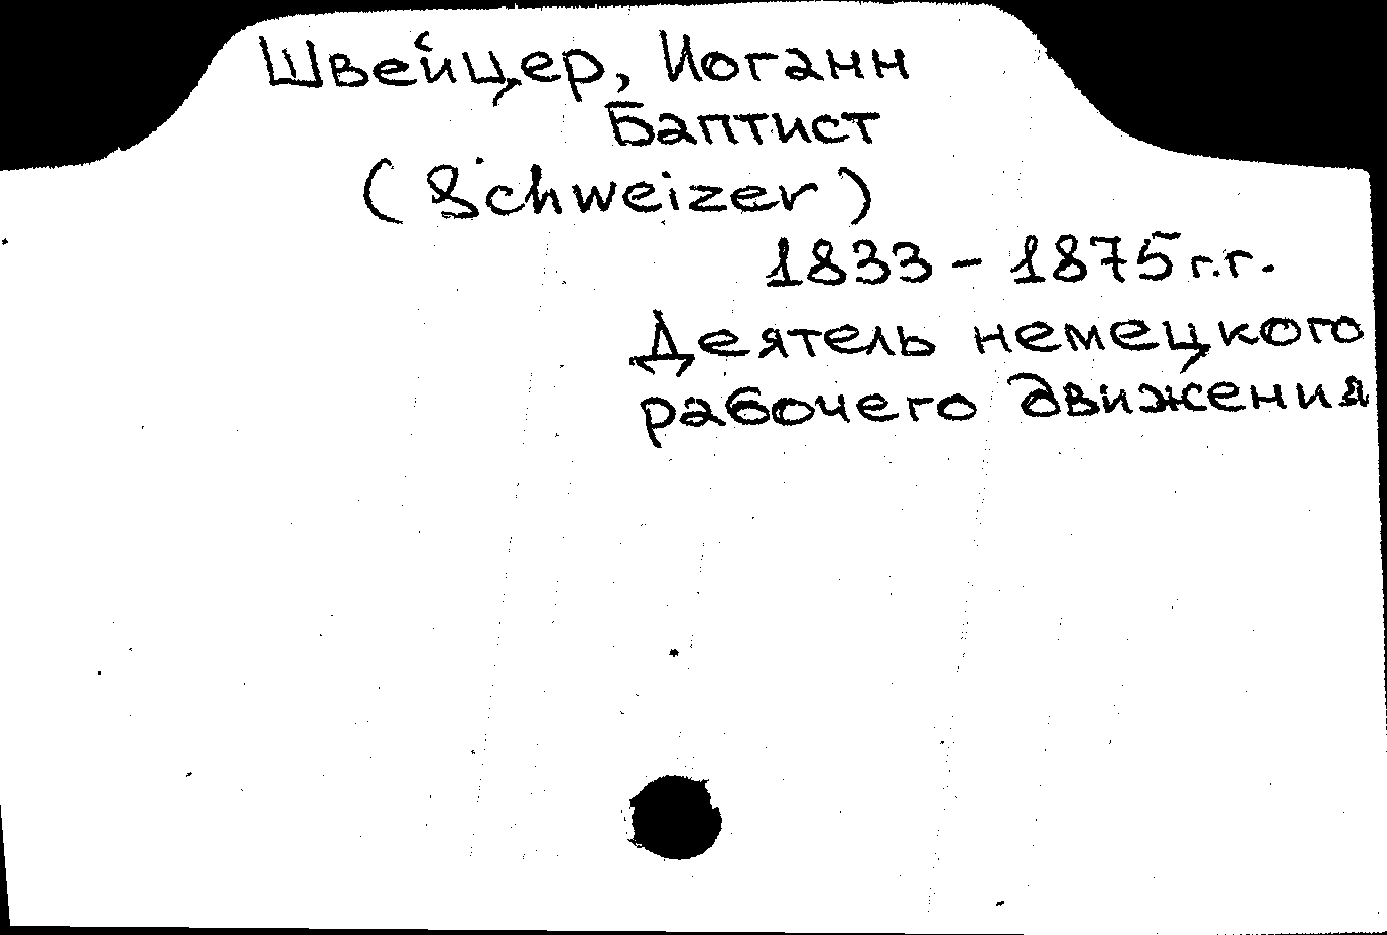 Швейцер, Иоганн
Баптист
(Schweizer)
1833 - 1875 г.г.
Деятель немецкого
рабочего движения